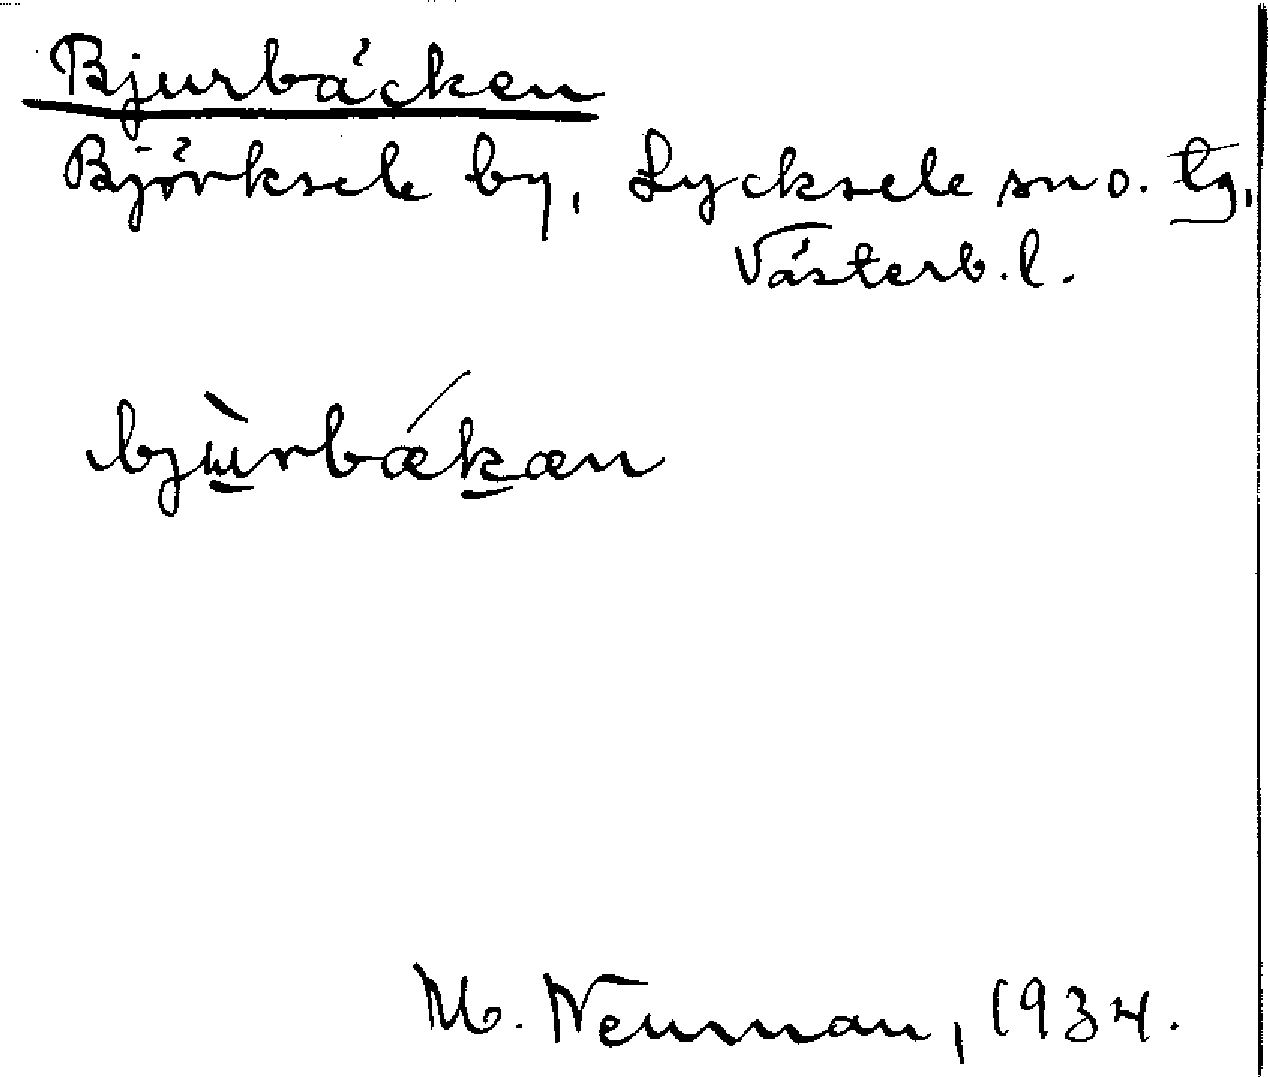 Bjurbäcken
Björksele by, Lycksele sn o. tg,
Västerb. l.
bjùrbækæn
M. Neuman, 1934.